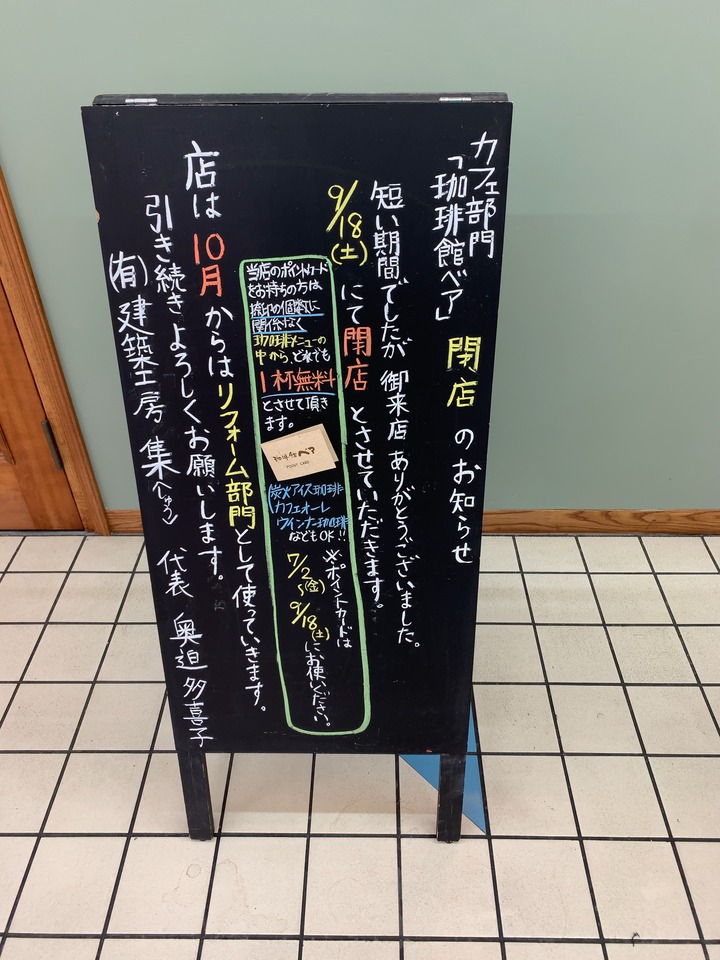 カフェ部門
「珈琲館ベア」 閉店 のお知らせ
短い期間でしたが 御来店 ありがとうございました。
9/18(土) にて 閉店 とさせていただきます。
当店のポイントカード
をお持ちの方は、
捺印の個数に
関係なく
珈琲メニューの
中から、どれでも
1杯無料
とさせて頂き
ます。
珈琲館 ベア
POINT CARD
炭火アイス珈琲
カフェオーレ
ウインナー珈琲
などもOK!!
※ポイントカードは
7/2(金)〜9/18(土)にお使いください。
店は 10月 からは リフォーム部門 として使っていきます。
引き続き よろしくお願いします。
(有)建築工房 集〈しゅう〉 代表 奥迫 多喜子